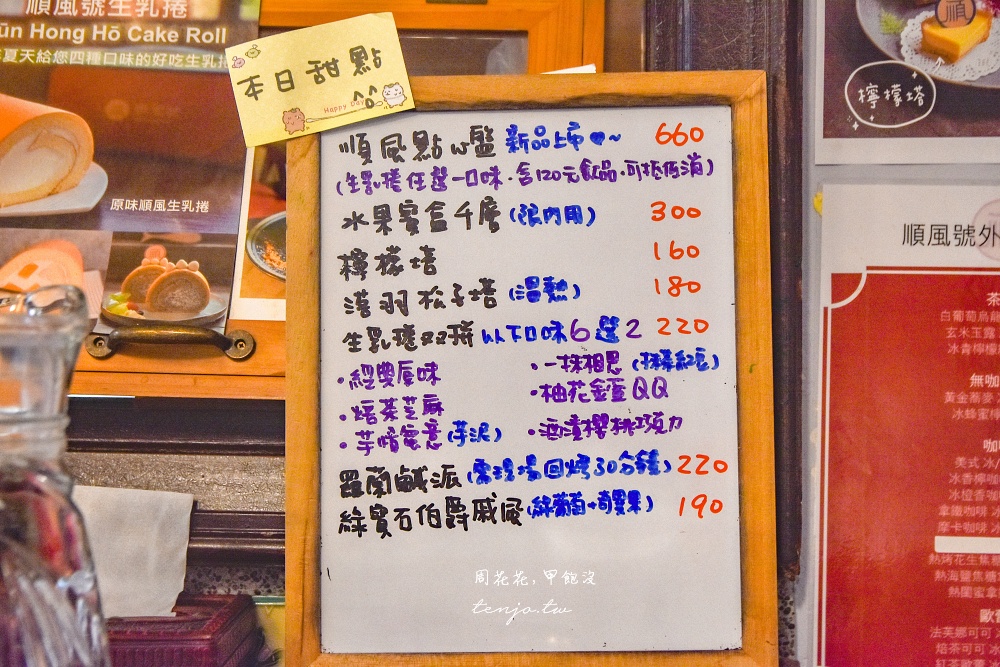 順風號生乳捲
ün Hong Hō Cake Roll
夏天給您四種口味的好吃生乳
原味順風生乳捲
本日甜點
Happy Day
順風點心盤 新品上市♥~ 660
(生乳捲任選一口味·含120元飲品·可抵低消)
水果蜜盒千層 (限內用) 300
檸檬塔 160
漢羽松子塔 (溫熱) 180
生乳捲双拼 以下口味6選2 220
·經典原味
·焙茶芝麻
·芋暗蜜意 (芋泥)
·一抹相思 (抹茶紅豆)
·柚花金蛋QQ
·酒漬櫻桃巧克力
羅蘭鹹派 (需現場回烤30分鐘) 220
綠寶石伯爵戚風 (綠葡萄+奇異果) 190
周花花,甲飽没
tenjo.tw
順
檸檬塔
順風號外
茶
白葡萄烏龍
玄米玉露
冰青檸檬
無咖
黃金蕎麥
冰蜂蜜檸
咖
美式 冰/
冰香檸咖
冰橙香咖
拿鐵咖啡 冰
摩卡咖啡 冰
熱烤花生焦糖
熱海鹽焦糖
熱閨蜜拿
歐
法芙娜可可
焙茶可可 冰
紅茶歐蕾